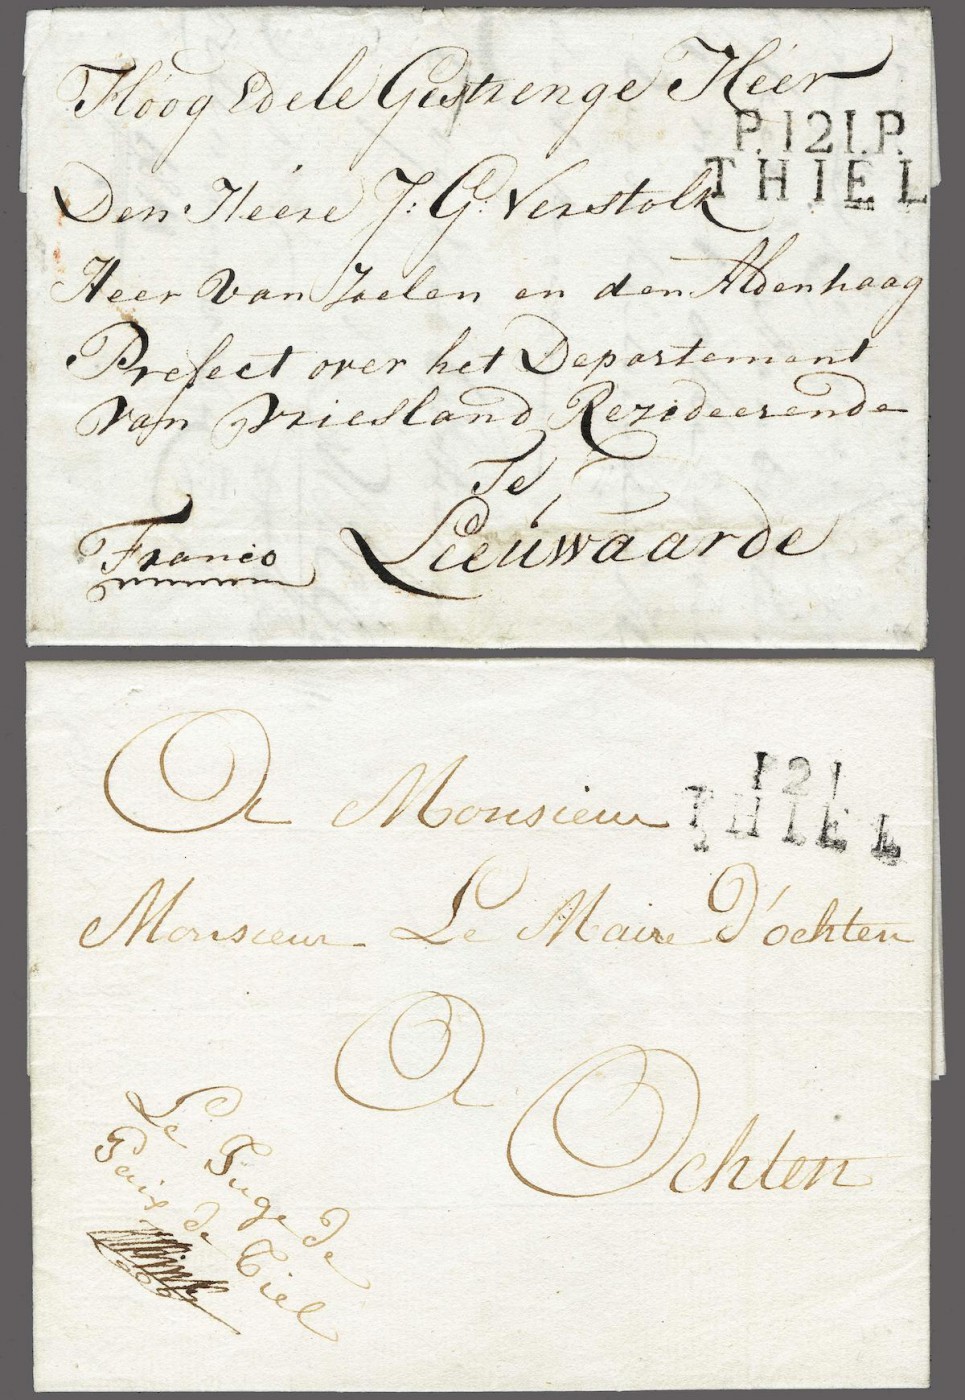 Hoog Edele Gestrenge Heer
P.121.P.
THIEL
Den Heere J: G: Verstolk
Heer Van Zoelen en den Aldenhaag
Prefect over het Departement
Van Vriesland Rezideerende
Te
Leeuwaarde
Franco
A Monsieur
121
THIEL
Monsieur Le Maire d'ochten
A
Ochten
Le Juge de
Paix de Tiel